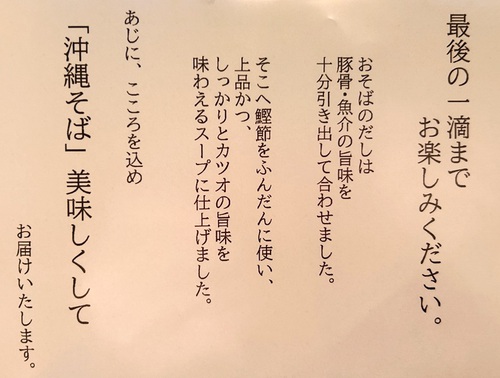 最後の一滴まで
お楽しみください。
おそばのだしは
豚骨・魚介の旨味を
十分引き出して合わせました。
そこへ鰹節をふんだんに使い、
上品かつ、
しっかりとカツオの旨味を
味わえるスープに仕上げました。
あじに、こころを込め
「沖縄そば」美味しくして
お届けいたします。